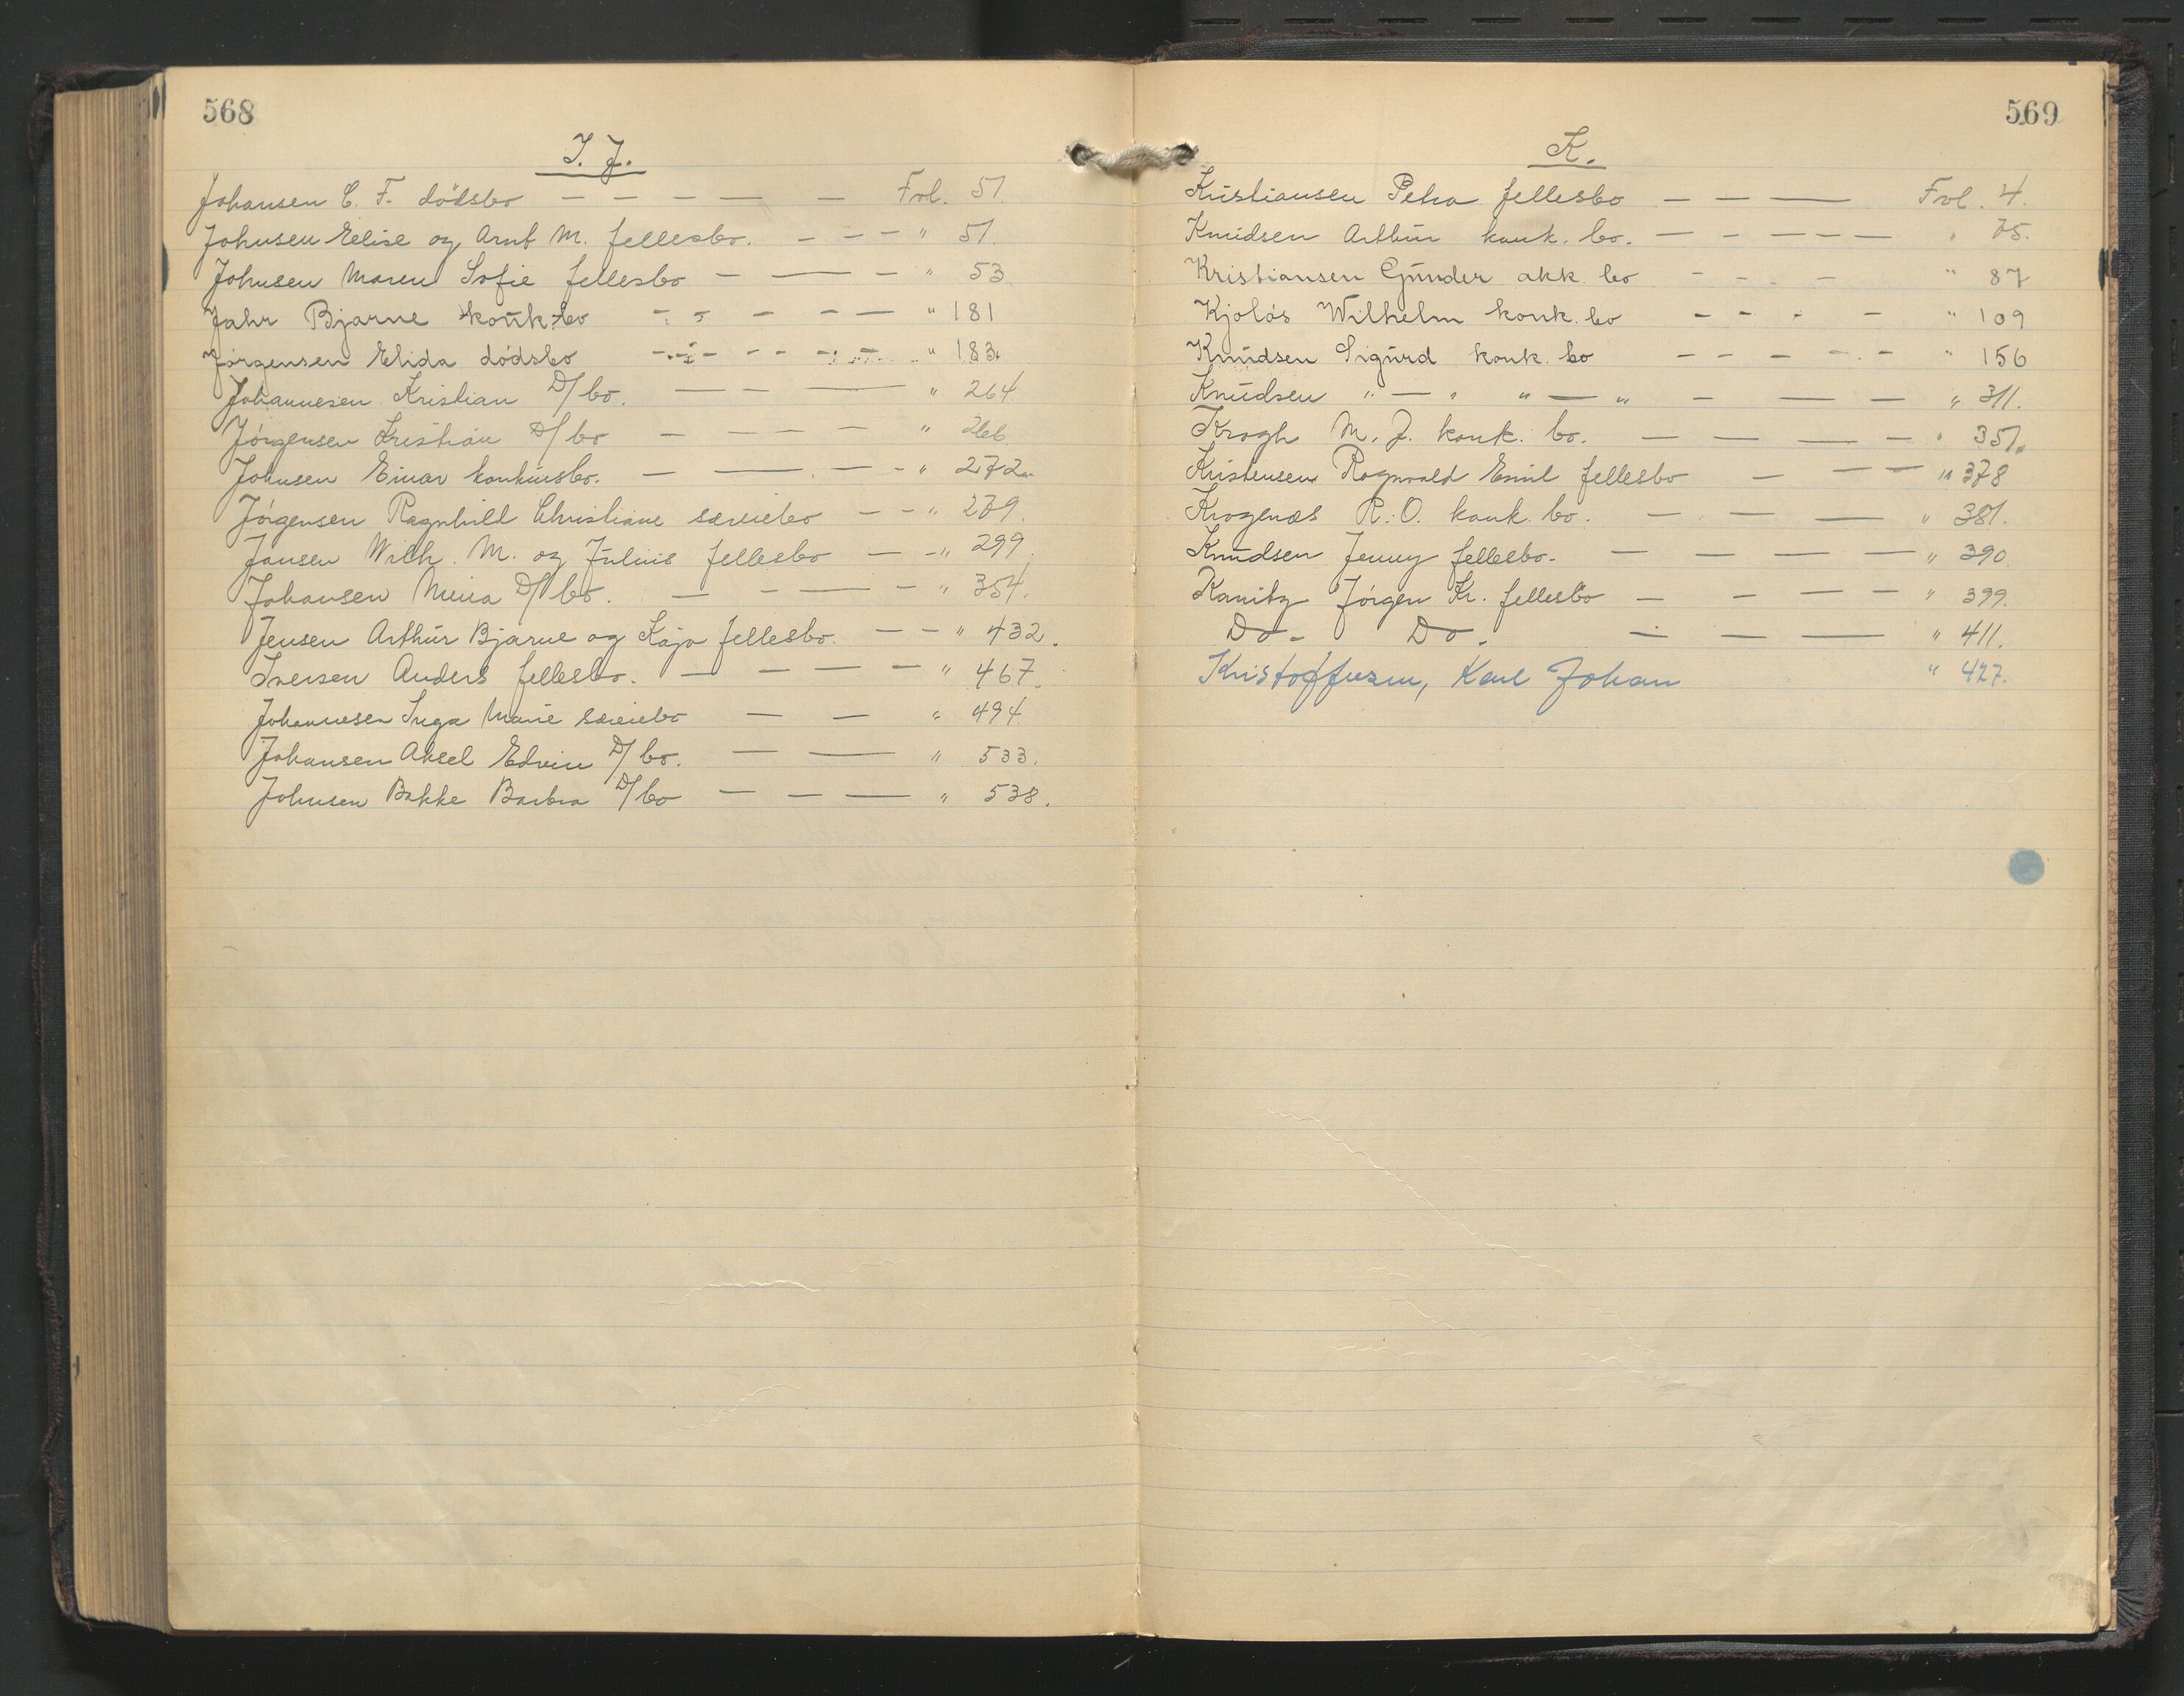 568
I. J.
Johansen C. F. dödsbo — — — — — — Fol. 51.
Johnsen Elise og Arnt M. fellesbo. — — — " 51.
Johnsen Maren Sofie fellesbo — — — " 53
Jahr Bjarne konk. bo — — — — — " 181
Jörgensen Elida dödsbo — — — — — — " 183.
Johannesen Kristian D/bo. — — — " 264
Jörgensen Kristian D/bo — — — — " 266.
Johnsen Einar konkursbo. — — — — " 272.
Jörgensen Ragnhild Christiane særeiebo — — " 279.
Jansen Wilh. M. og Julius fellesbo — — " 299.
Johansen Mina D/bo. — — — — " 354.
Jensen Arthur Bjarne og Kaja fellesbo. — — " 432.
Iversen Anders fellesbo. — — — — " 467.
Johannesen Inga Marie særeiebo — — " 494.
Johansen Aksel Edvin D/bo. — — " 533.
Johnsen Bakke Barbra D/bo — — — " 538.
569
K.
Kristiansen Petra fellesbo — — — Fol. 4.
Knudsen Arthur konk. bo. — — — — — " 75.
Kristiansen Gunder akk. bo — — — — " 87
Kjolås Wilhelm konk. bo — — — — " 109
Knudsen Sigurd konk. bo — — — — — " 156
Knudsen " — " " — " — — — " 311.
Krogh M. J. konk. bo. — — — — — " 351.
Kristensen Ragnvald Emil fellesbo — — — " 378
Krogenæs R. O. konk. bo. — — — — " 381.
Knudsen Jenny fellesbo. — — — — — " 390.
Kanitz Jörgen Kr. fellesbo — — — — " 399.
Do. Do. — — — — " 411.
Kristoffersen, Karl Johan " 427.